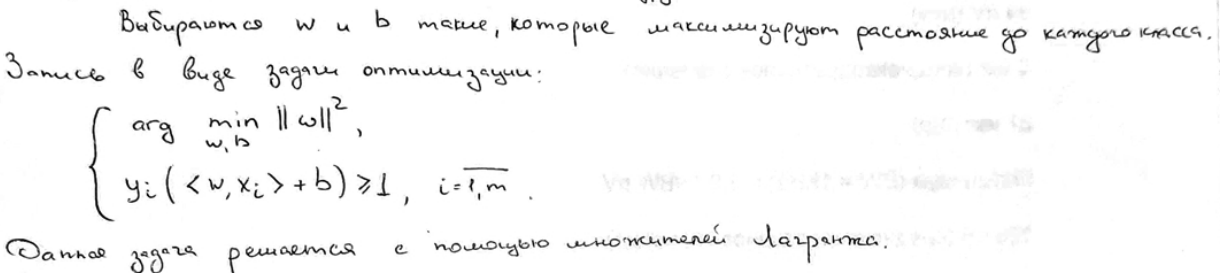 Выбираются w и b такие, которые максимизируют расстояние до каждого класса.
Запись в виде задачи оптимизации:
{ arg min ‖w‖²,
w, b
yᵢ(<w, xᵢ> + b) ⩾ 1, i = 1, m.
Данная задача решается с помощью множителей Лагранжа.